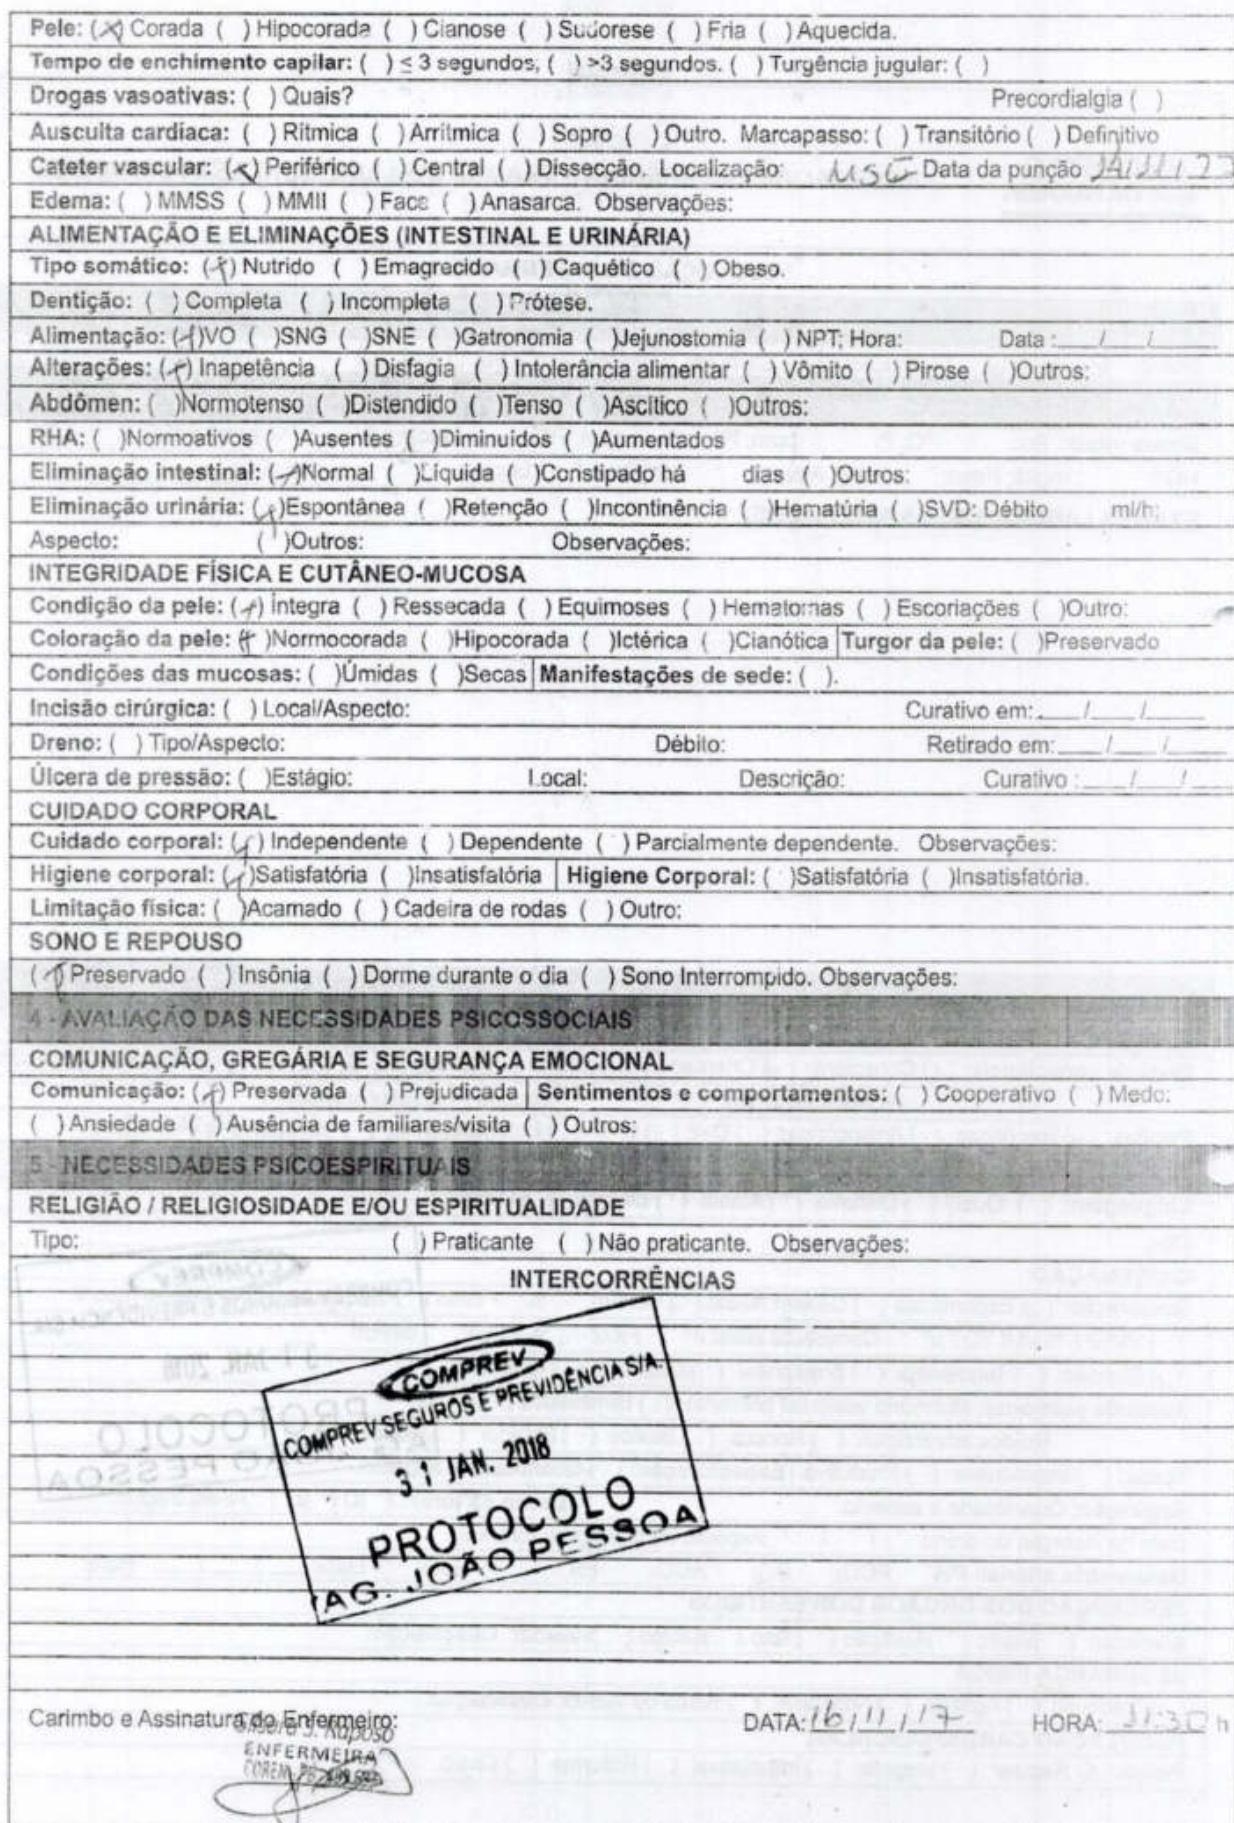 Pele: (X) Corada ( ) Hipocorada ( ) Cianose ( ) Sudorese ( ) Fria ( ) Aquecida.
Tempo de enchimento capilar: ( ) ≤ 3 segundos, ( ) >3 segundos. ( ) Turgência jugular: ( )
Drogas vasoativas: ( ) Quais? Precordialgia ( )
Ausculta cardíaca: ( ) Rítmica ( ) Arrítmica ( ) Sopro ( ) Outro. Marcapasso: ( ) Transitório ( ) Definitivo
Cateter vascular: (x) Periférico ( ) Central ( ) Dissecção. Localização: MSE Data da punção
Edema: ( ) MMSS ( ) MMII ( ) Face ( ) Anasarca. Observações:
ALIMENTAÇÃO E ELIMINAÇÕES (INTESTINAL E URINÁRIA)
Tipo somático: (x) Nutrido ( ) Emagrecido ( ) Caquético ( ) Obeso.
Dentição: ( ) Completa ( ) Incompleta ( ) Prótese.
Alimentação: (x)VO ( )SNG ( )SNE ( )Gatronomia ( )Jejunostomia ( ) NPT; Hora: Data :___/___/___
Alterações: (x) Inapetência ( ) Disfagia ( ) Intolerância alimentar ( ) Vômito ( ) Pirose ( )Outros:
Abdômen: ( )Normotenso ( )Distendido ( )Tenso ( )Ascítico ( )Outros:
RHA: ( )Normoativos ( )Ausentes ( )Diminuídos ( )Aumentados
Eliminação intestinal: (x)Normal ( )Líquida ( )Constipado há dias ( )Outros:
Eliminação urinária: (x)Espontânea ( )Retenção ( )Incontinência ( )Hematúria ( )SVD: Débito ml/h;
Aspecto: ( )Outros: Observações:
INTEGRIDADE FÍSICA E CUTÂNEO-MUCOSA
Condição da pele: (x) Íntegra ( ) Ressecada ( ) Equimoses ( ) Hematomas ( ) Escoriações ( )Outro:
Coloração da pele: (x)Normocorada ( )Hipocorada ( )Ictérica ( )Cianótica Turgor da pele: ( )Preservado
Condições das mucosas: ( )Úmidas ( )Secas Manifestações de sede: ( ).
Incisão cirúrgica: ( ) Local/Aspecto: Curativo em:___/___/___
Dreno: ( ) Tipo/Aspecto: Débito: Retirado em:___/___/___
Úlcera de pressão: ( )Estágio: Local: Descrição: Curativo :___/___/___
CUIDADO CORPORAL
Cuidado corporal: (x) Independente ( ) Dependente ( ) Parcialmente dependente. Observações:
Higiene corporal: (x)Satisfatória ( )Insatisfatória Higiene Corporal: ( )Satisfatória ( )Insatisfatória.
Limitação física: ( )Acamado ( ) Cadeira de rodas ( ) Outro:
SONO E REPOUSO
(x) Preservado ( ) Insônia ( ) Dorme durante o dia ( ) Sono Interrompido. Observações:
4 - AVALIAÇÃO DAS NECESSIDADES PSICOSSOCIAIS
COMUNICAÇÃO, GREGÁRIA E SEGURANÇA EMOCIONAL
Comunicação: (x) Preservada ( ) Prejudicada Sentimentos e comportamentos: ( ) Cooperativo ( ) Medo:
( ) Ansiedade ( ) Ausência de familiares/visita ( ) Outros:
5 - NECESSIDADES PSICOESPIRITUAIS
RELIGIÃO / RELIGIOSIDADE E/OU ESPIRITUALIDADE
Tipo: ( ) Praticante ( ) Não praticante. Observações:
INTERCORRÊNCIAS
COMPREV
COMPREV SEGUROS E PREVIDÊNCIA S/A.
31 JAN. 2018
PROTOCOLO
AG. JOÃO PESSOA
Carimbo e Assinatura do Enfermeiro: DATA: 16/11/17 HORA: 11:30 h
J. Raposo
ENFERMEIRA
COREN PB